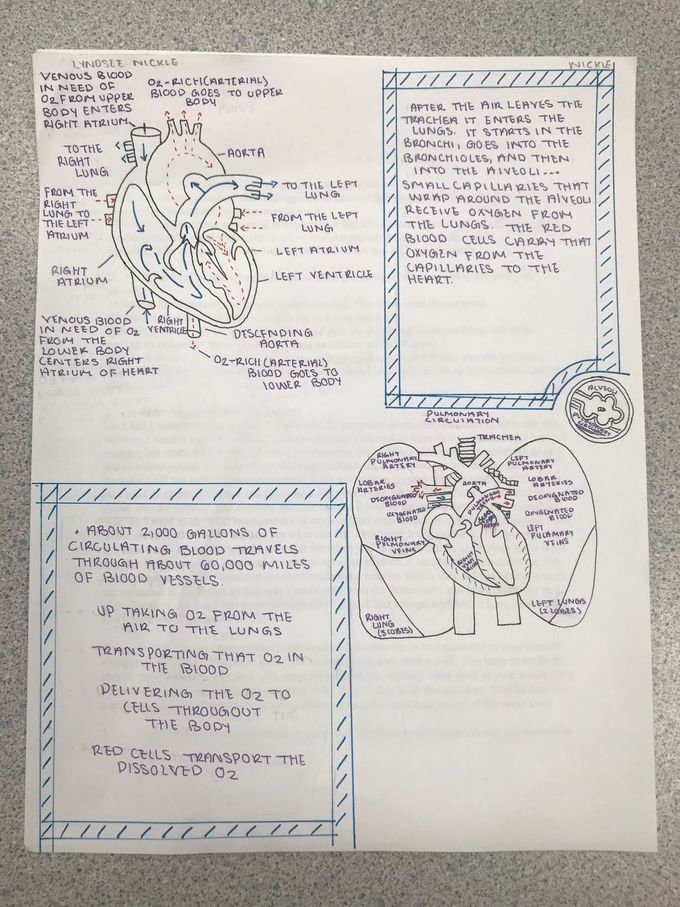 LYNDSEE NICKLE
NICKLE
VENOUS BLOOD
IN NEED OF
O2 FROM UPPER
BODY ENTERS
RIGHT ATRIUM
O2-RICH (ARTERIAL)
BLOOD GOES TO UPPER
BODY
TO THE
RIGHT
LUNG
AORTA
TO THE LEFT
LUNG
FROM THE
RIGHT
LUNG TO
THE LEFT
ATRIUM
FROM THE LEFT
LUNG
LEFT ATRIUM
RIGHT
ATRIUM
LEFT VENTRICLE
VENOUS BLOOD
IN NEED OF O2
FROM THE
LOWER BODY
CENTERS RIGHT
ATRIUM OF HEART
RIGHT
VENTRICLE
DESCENDING
AORTA
O2-RICH (ARTERIAL)
BLOOD GOES TO
LOWER BODY
AFTER THE AIR LEAVES THE
TRACHEA IT ENTERS THE
LUNGS. IT STARTS IN THE
BRONCHI, GOES INTO THE
BRONCHIOLES, AND THEN
INTO THE ALVEOLI...
SMALL CAPILLARIES THAT
WRAP AROUND THE ALVEOLI
RECEIVE OXYGEN FROM
THE LUNGS. THE RED
BLOOD CELLS CARRY THAT
OXYGEN FROM THE
CAPILLARIES TO THE
HEART.
ALVEOLI
PULMONARY
CIRCULATION
TRACHEA
RIGHT
PULMONARY
ARTERY
LEFT
PULMONARY
ARTERY
LOBAR
ARTERIES
LOBAR
ARTERIES
DEOXYGNATED
BLOOD
DEOXYGNATED
BLOOD
OXYGENATED
BLOOD
OXYGENATED
BLOOD
AORTA
PULMONARY
RIGHT
PULMONARY
VEINS
LEFT
PULAMARY
VEINS
RIGHT
RIGHT
LUNG
(3 LOBES)
LEFT LUNGS
(2 LOBES)
• ABOUT 2,000 GALLONS OF
CIRCULATING BLOOD TRAVELS
THROUGH ABOUT 60,000 MILES
OF BLOOD VESSELS.
UP TAKING O2 FROM THE
AIR TO THE LUNGS
TRANSPORTING THAT O2 IN
THE BLOOD
DELIVERING THE O2 TO
CELLS THROUGOUT
THE BODY
RED CELLS TRANSPORT THE
DISSOLVED O2